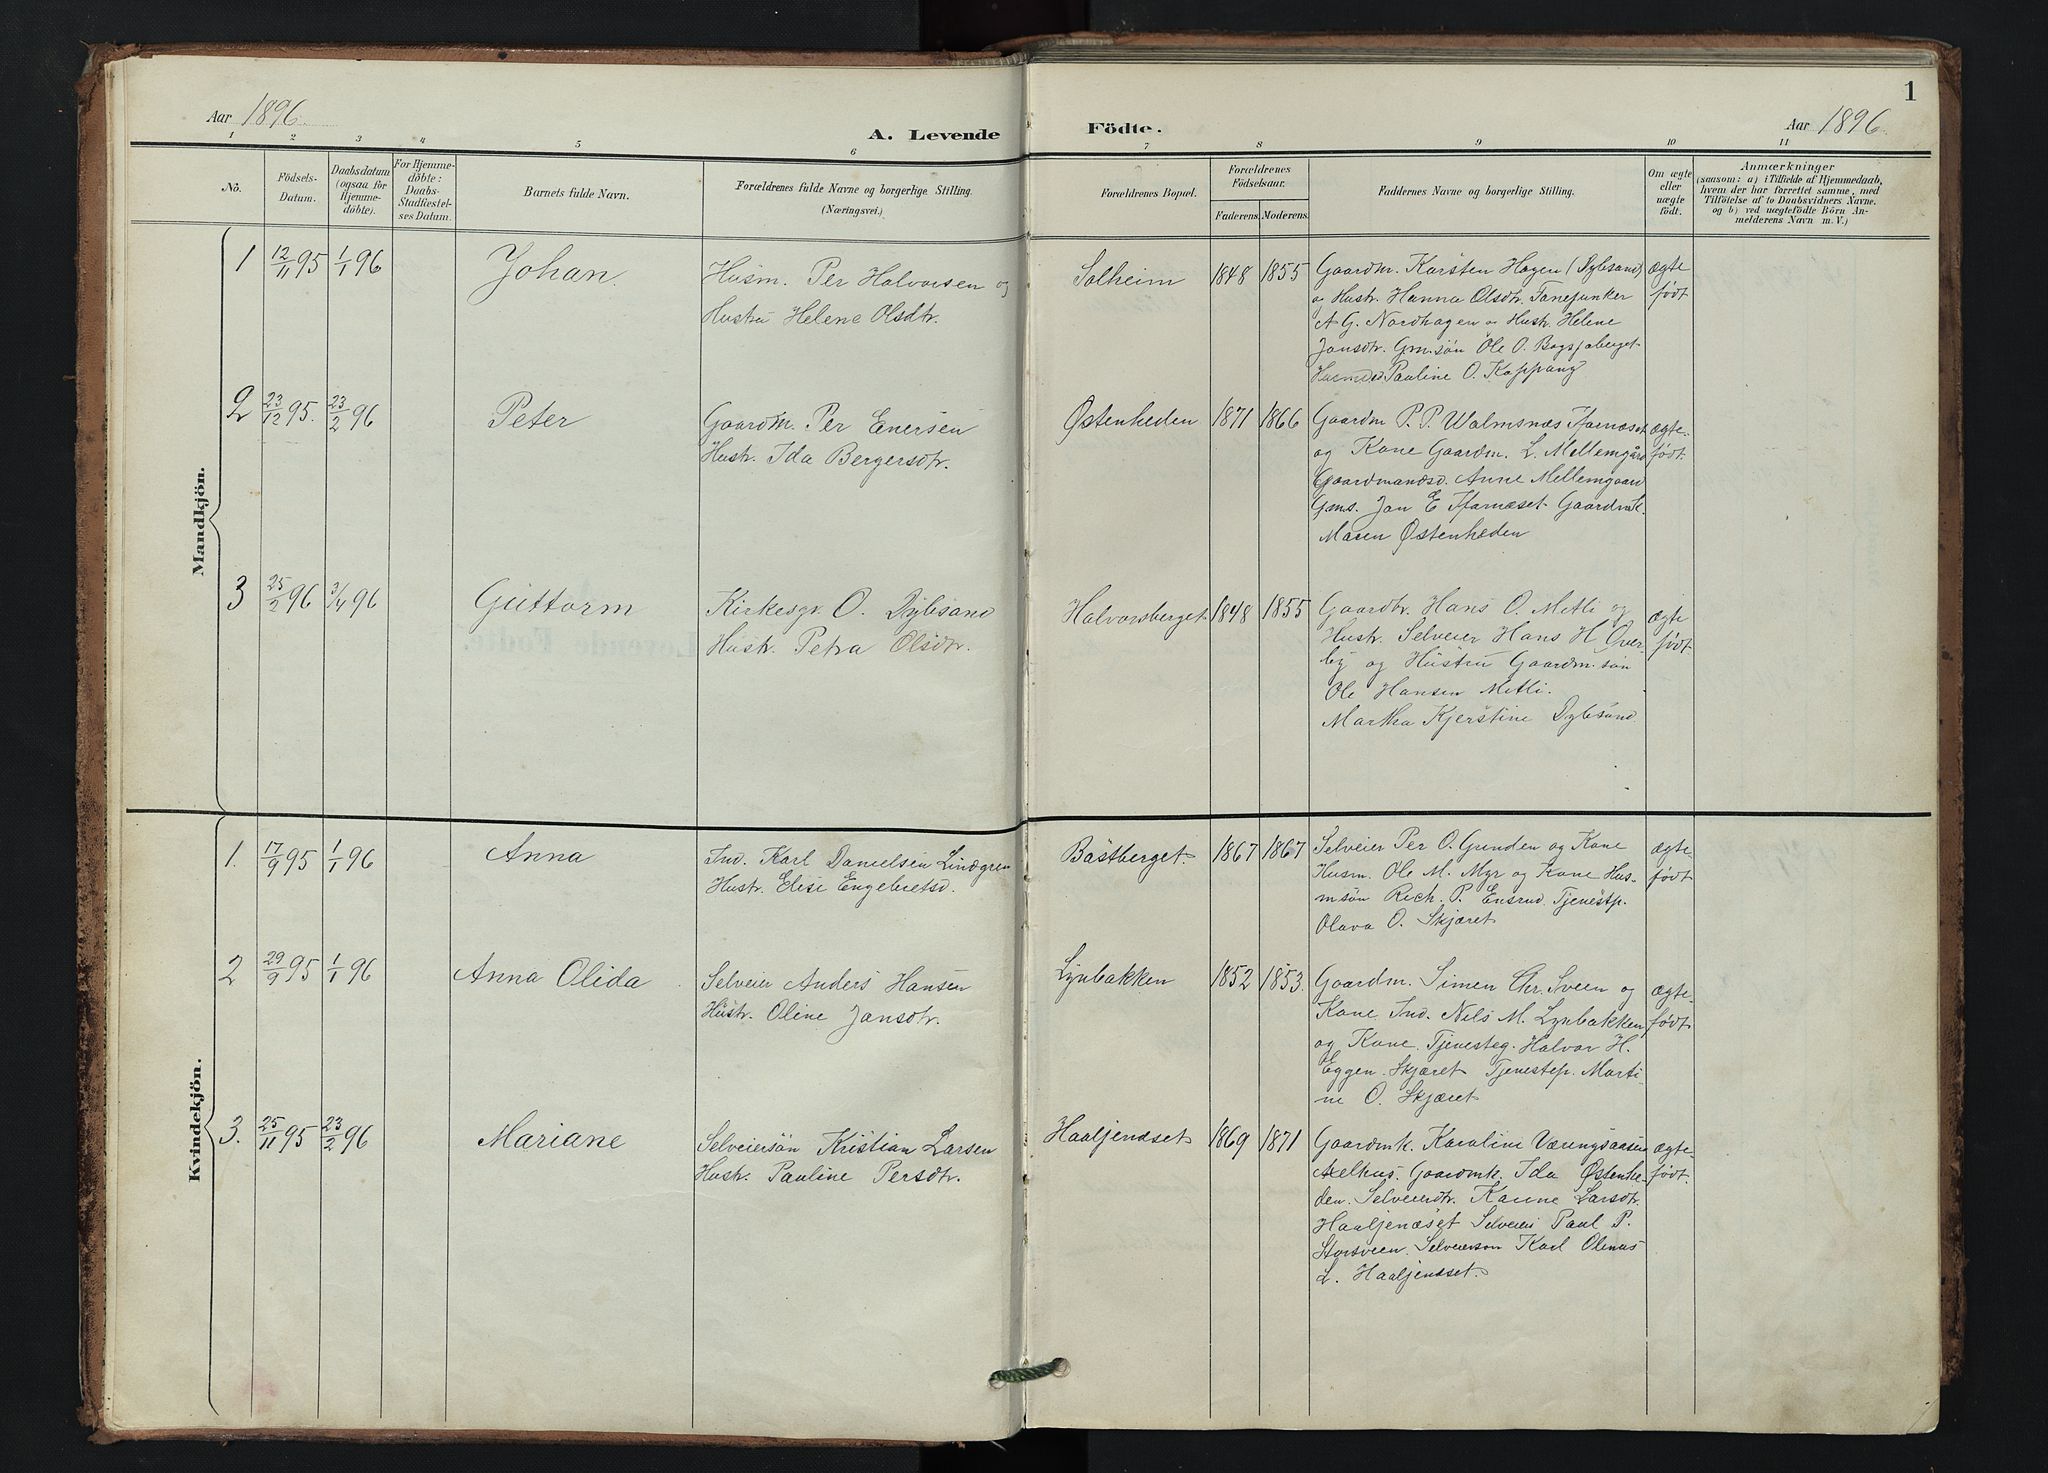 Aar 1896.
A. Levende Födte.
Aar 1896.
1
1 2 3 4 5 6 7 8 9 10 11
No.
Födsels-
Datum.
Daabsdatum
(ogsaa for
Hjemme-
döbte).
For Hjemme-
döbte:
Daabs-
Stadfæstel-
ses Datum.
Barnets fulde Navn.
Forældrenes fulde Navne og borgerlige Stilling.
(Næringsvei.)
Forældrenes Bopæl.
Forældrenes
Födselsaar.
Faderens. Moderens.
Faddernes Navne og borgerlige Stilling.
Om ægte
eller
uægte
födt.
Anmærkninger
(saasom: a) i Tilfælde af Hjemmedaab,
hvem der har forrettet samme, med
Tilföielse af to Daabsvidners Navne.
og b) ved uægtefödte Börn An-
melderens Navn m. V.)
Mandkjön.
1 12/11 95 1/1 96 Johan.
Husm. Per Halvorsen og
Hustru Helene Olsdtr.
Solheim 1848 1855
Gaardm. Karsten Hagen (Dybsand)
og Hustr. Hanna Olsdtr. Fanejunker
A G. Nordhagen og Hustr. Helene
Jansdtr. Gm.søn Ole O. Bogsjøberget
Pauline O. Koppang
ægte
født
2 23/12 95. 23/2 96 Peter
Gaardm. Per Enersen
Hustr. Ida Bergersdtr.
Østenheden 1871 1866
Gaardm P. P. Walmsnæs
og Kone Gaardm. L. Mellemgård
Gaardmandsd. Anne Mellemgaard
Gms. Jan E Gaardmk.
Maren Østenheden
ægte-
født.
3 25/2 96 3/4 96 Guttorm
Kirkesgr. O. Dybsand
Hustr. Petra Olsdtr.
Halvorsberget 1848 1855
Gaardbr. Hans O. Metli og
Hustr. Selveier Hans H. Over-
by og Hustru Gaardm. søn
Ole Hansen Metli.
Martha Kjerstine Dybsand
ægte
født
Kvindekjön.
1. 17/9 95 1/1 96 Anna
Ind. Karl Danielsen Lindgren
Hustr. Elise Engebretsd.
Bastberget. 1867 1867
Selveier Per O. Grinden og Kone
Husm. Ole M. Myr og Kone Hus-
msøn Rich. P. Ensrud. Tjenestp.
Olava O. Skjæret
ægte
født
2 29/9 95 1/1 96 Anna Olida
Selveier Anders Hansen
Hustr. Oline Jansdtr.
Lynbakken 1852 1853.
Gaardm. Simen Chr. Sveen og
Kone Ind. Nils M. Lynbakken
og Kone. Tjenesteg. Halvor H.
Eggen. Skjæret Tjenestep. Marti-
ne O. Skjæret
ægte-
født
3. 25/11 95 23/2 96 Mariane
Selveiersøn Kristian Larsen
Hustr. Pauline Persdtr.
Haaljendset 1869 1871
Gaardmk. Karoline Væringsaasen
Aelhus. Gaardmk. Ida Østenhe-
den. Selveierdtr. Karine Larsdtr.
Haaljenæset Selveier Paul P.
Storsveen. Selveiersøn Karl Olenus
L. Haaljendset.
ægte-
født.